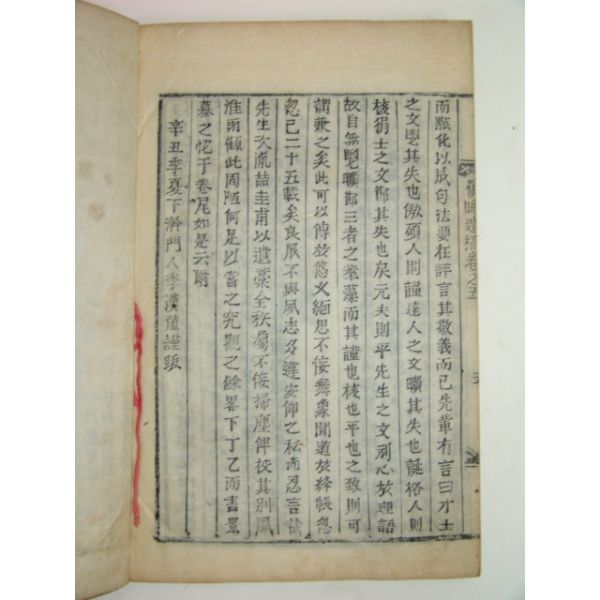 遺稿卷之五
而點化以成句法要在評言其敬義而已先輩有言曰才士
之文其失也傲碩人則謹達人之文曠其失也誕格人則
核狷士之文鄙其失也戾元夫則平先生之文刻心於理語
故自無曠鄙三者之華藻而其謹也核也平也之致則可
謂兼之矣此可以傳於悠久絶思不侫舞象聞道於絳帳忽
忽已二十五載矣良辰不與夙志多違安仰之私尚忍言諸
先生次胤喆圭甫以遺藁全袟屬不侫掃塵俾校其別風
淮雨顧此固陋何足以當之究觀之餘畧下丁乙而書景
慕之忱于卷尾如是云爾
辛丑季夏下澣門人李漢謹跋